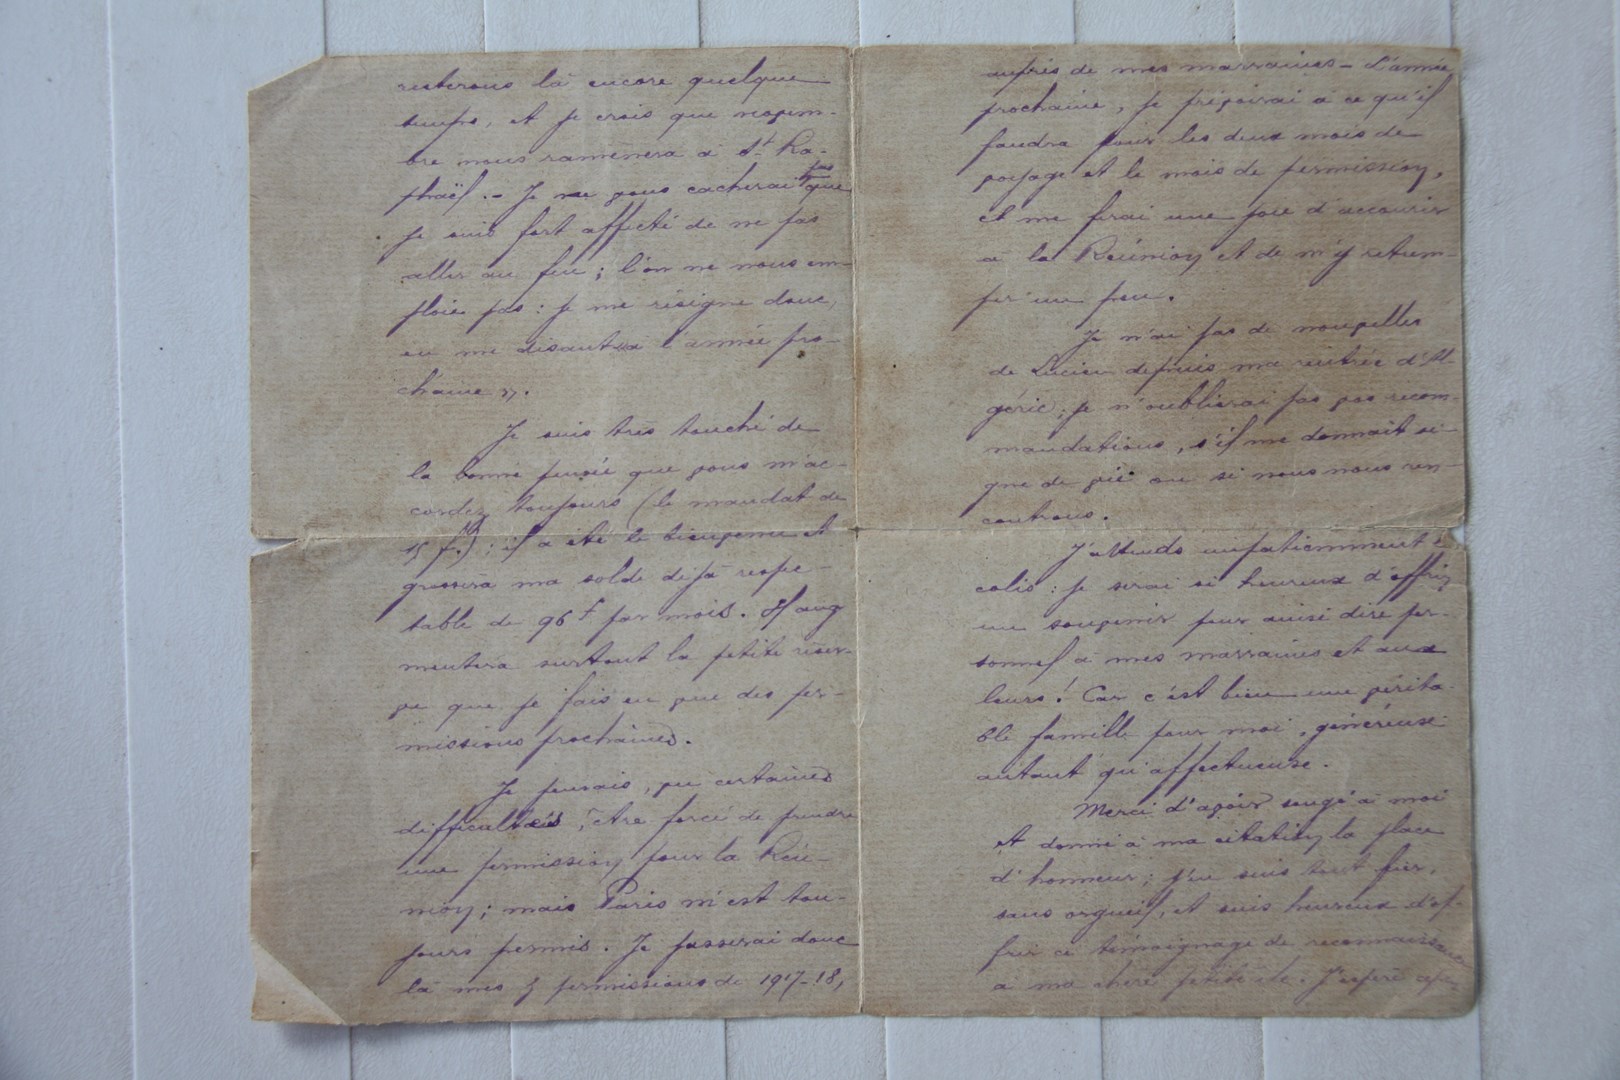 resterons là encore quelque
temps, et je crois que novem-
bre nous ramènera à St Ra-
phaël. - Je ne vous cacherai pas que
je suis fort affecté de ne pas
aller au feu ; l'on ne nous em-
ploie pas : je me résigne donc,
en me disant « à l'année pro-
chaine ».
Je suis très touché de
la bonne pensée que vous m'ac-
cordez toujours (le mandat de
15 f.) ; il a été le bienvenu et
grossira ma solde déjà respec-
table de 96 f par mois. Il aug
mentera surtout la petite réser-
ve que je fais en vue des per-
missions prochaines.
Je pensais, vu certaines
difficultés, être forcé de prendre
une permission pour la Réu-
nion ; mais Paris m'est tou-
jours permis. Je passerai donc
là mes permissions de 1917-18,
auprès de mes marraines - L'année
prochaine, je prévoirai à ce qu'il
faudra pour les deux mois de
voyage et le mois de permission,
et me ferai une joie d'accourir
à la Réunion et de m'y retrem-
per un peu.
Je n'ai pas de nouvelles
de Lucien depuis ma rentrée d'Al-
gérie ; je n'oublierai pas vos recom-
mandations, s'il me donnait si-
gne de vie ou si nous nous ren-
controns.
J'attends impatiemment le
colis : je serai si heureux d'offrir
un souvenir pour ainsi dire per-
sonnel à mes marraines et aux
leurs ! Car c'est bien une vérita-
ble famille pour moi, généreuse
autant qu'affectueuse.
Merci d'avoir songé à moi
et donné à ma citation la place
d'honneur ; j'en suis tout fier,
sans orgueil, et suis heureux d'of-
frir ce témoignage de reconnaissance
à ma chère petite île. J'espère